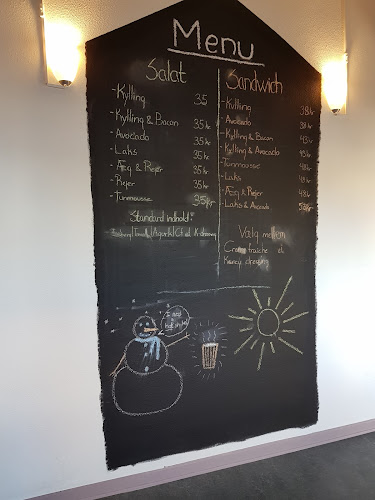 Menu
Salat
- Kylling 35
- Kylling & Bacon 35 kr
- Avocado 35 kr
- Laks 35 kr
- Æg & Rejer 35 kr
- Rejer 35 kr
- Tunmousse 35 kr
Standard indhold
Sandwich
- Kylling 38 kr
- Avocado 38 kr
- Kylling & Bacon 43 kr
- Kylling & Avocado
- Tunmousse
- Laks
- Æg & Rejer
- Laks & Avocado
Valg mellem
Creme fraiche el.
Karry dressing